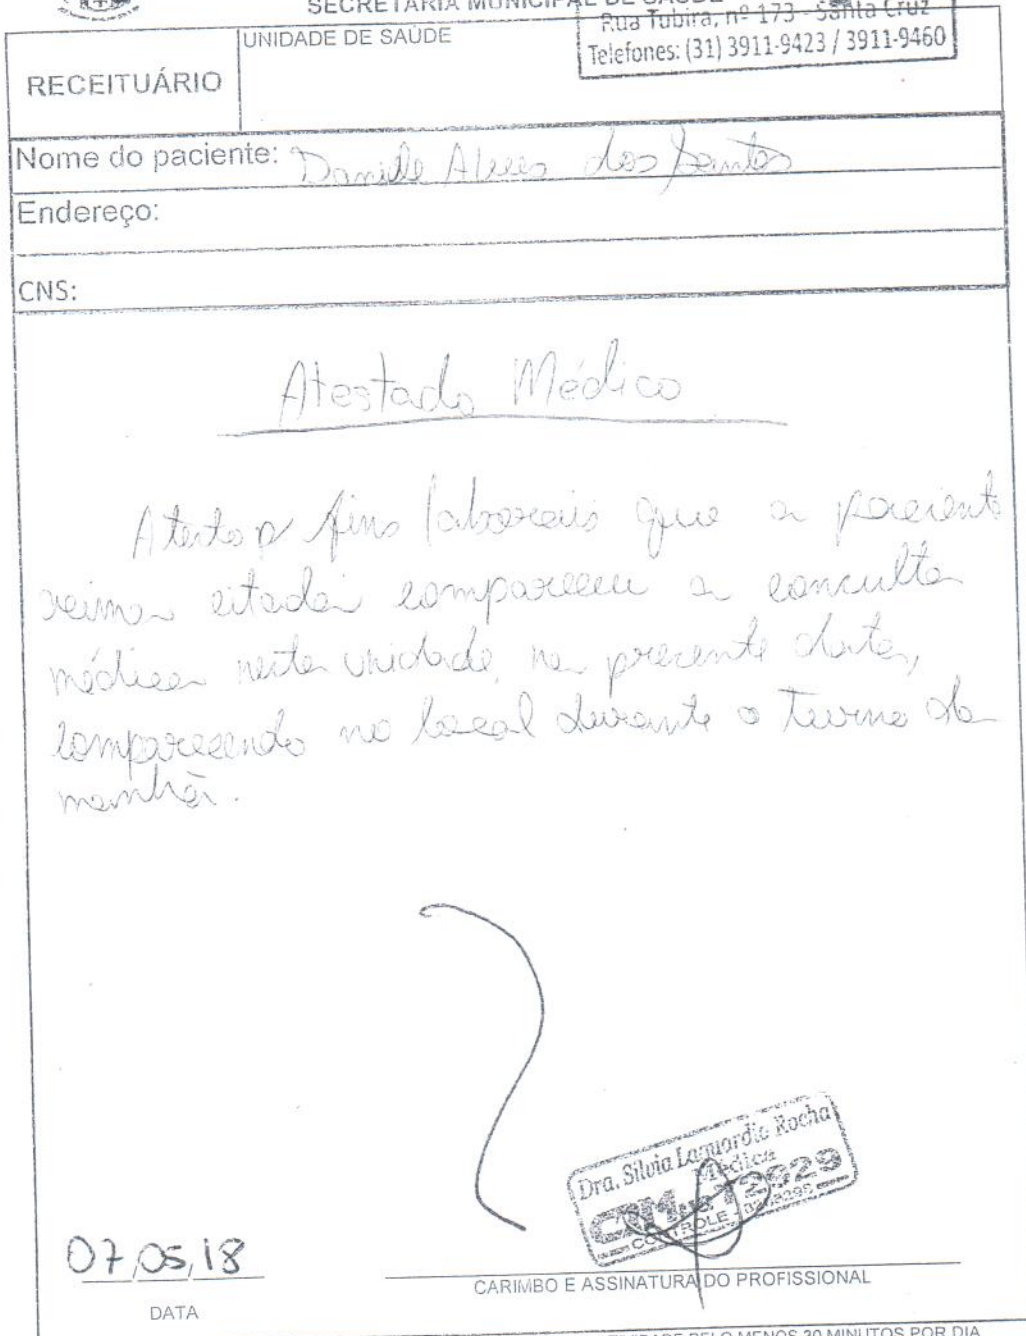 SECRETARIA MUNICIPAL DE SAÚDE
Rua Tubira, nº 173 - Santa Cruz
Telefones: (31) 3911-9423 / 3911-9460
UNIDADE DE SAÚDE
RECEITUÁRIO
Nome do paciente: Daniele Alves dos Santos
Endereço:
CNS:
Atestado Médico
Atesto p/ fins laborais que a paciente
acima citada compareceu a consulta
médica nesta unidade, na presente data,
comparecendo no local durante o turno da
manhã.
Dra. Silvia Laguardia Rocha
Médica
CRM MG 12929
CONTROLE -
07/05/18
CARIMBO E ASSINATURA DO PROFISSIONAL
DATA
PELO MENOS 30 MINUTOS POR DIA